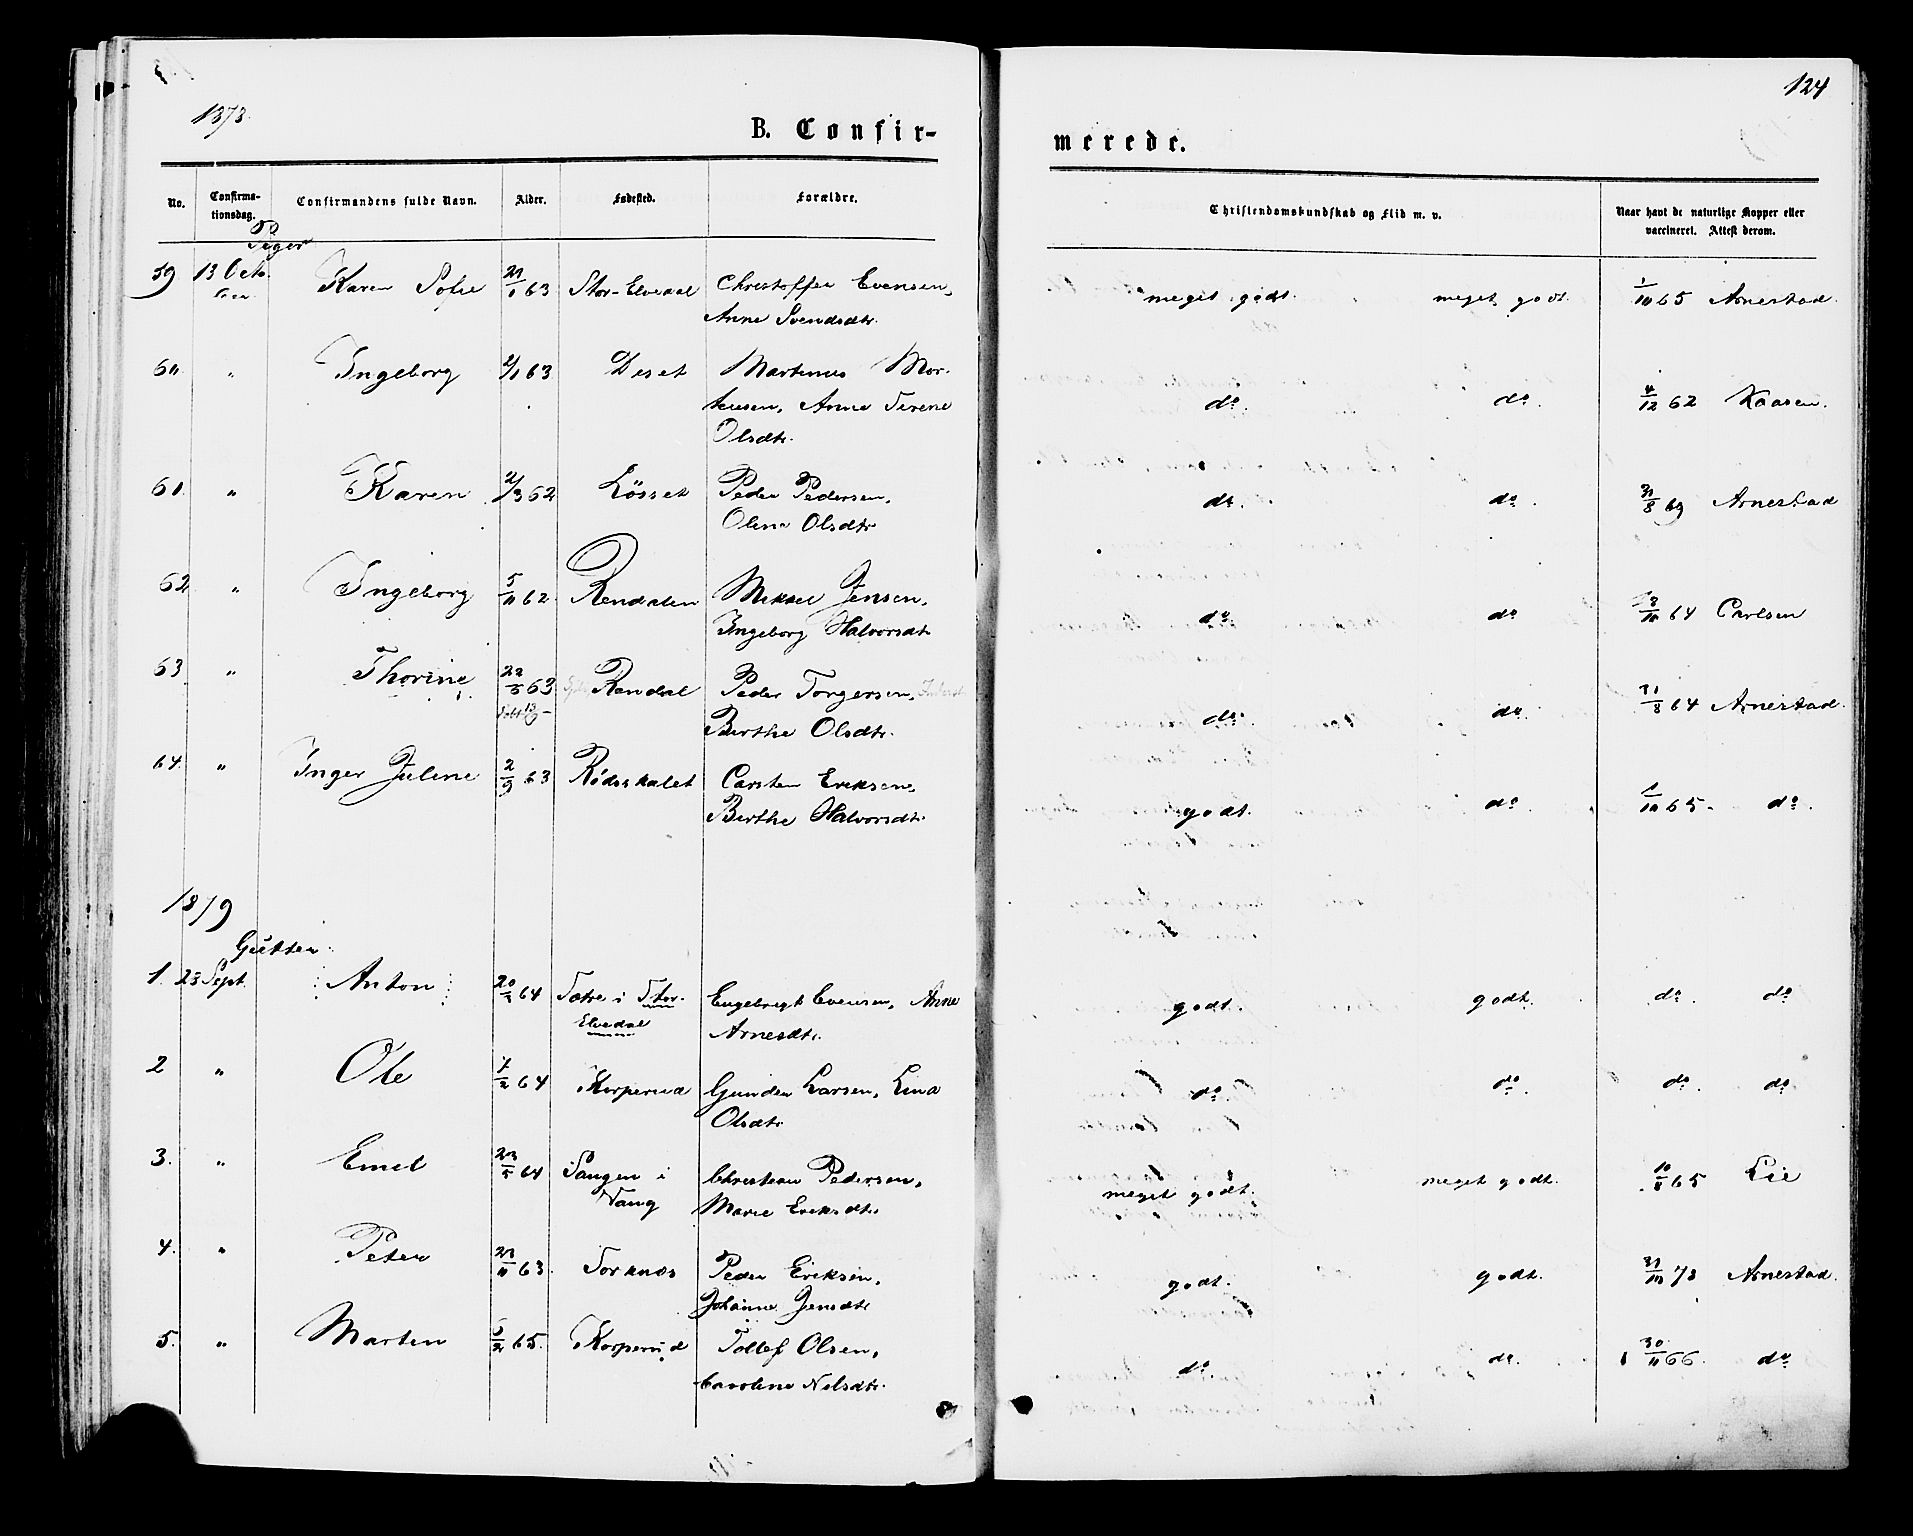 124
1878.
B. Confir-
merede.
No.
Confirma-
tionsdag.
Confirmandens fulde Navn.
Alder.
Fødested.
Forældre.
Christendomskundskab og Flid m. v.
Naar havt de naturlige Kopper eller
vaccineret. Attest derom.
Piger
59 13 Oct. Karen Sofie 63 Stor-Elvedal Christoffer Evensen, meget godt. meget godt. 1/10 65 Arnestad.
Anne Svendsdtr.
60 " Ingeborg 2/1 63 Deset Martinus Mor-
tensen, Anne Serene do. do. 4/12 62 Kaasen.
Olsdtr.
61. " Karen 2/3 62 Løsset Peder Pedersen, do. do. 31/8 69 Arnestad
Oline Olsdtr
62 " Ingeborg 5/11 62 Rendalen Mikael Jensen, do. do. 64 Carlsen
Ingeborg Halvorsdtr
63 " Thorine 22/5 63 Rendal Peder Torgersen, do. do. 31/8 64 Arnestad.
Berthe Olsdtr.
64. " Inger Juline 2/9 63 Rødsskalet Carsten Eriksen, godt. do 1/10 65. do.
Berthe Halvorsdtr.
1879
Gutter
1. 23 Sept. Anton 20/2 64 Sætre i Stor- Engebregt Evensen, Anne godt. godt. do. do
Elvedal Arnesdtr.
2 " Ole 1/2 64 Korperud Gunder Larsen, Lina do. do. do. do
Olsdtr
3. " Emil 23/5 64 Sangen i Christian Pedersen, meget godt. meget godt. 10/8 65 Lie
Vang Marie Eriksdtr.
4. " Peter 23/11 63. Sorknæs Peder Eriksen, godt. godt. 31/10 78 Arnestad.
Johanne Jensdtr
5. " Martin 5/2 65. Korperud Tollef Olsen, do. do. 30/11 66. do
Caroline Nilsdtr.